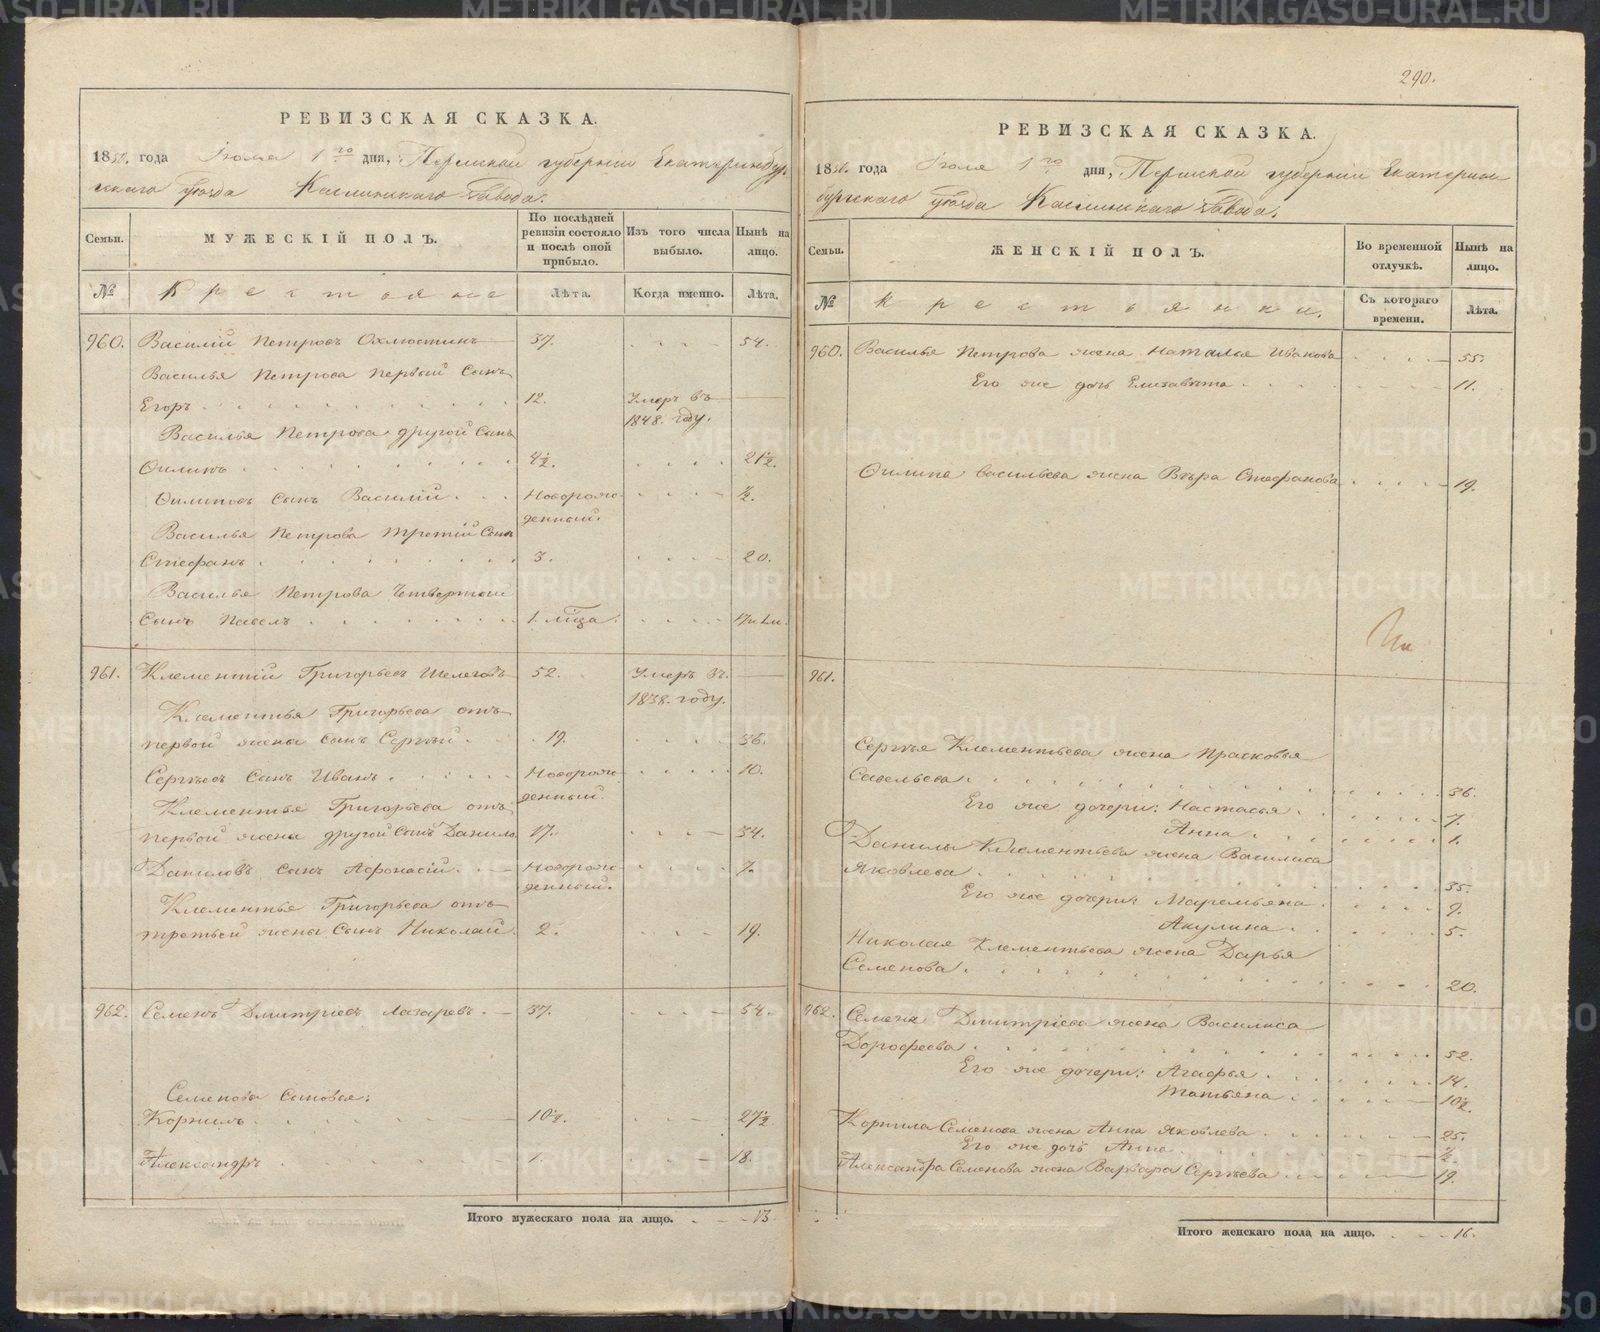 290.
РЕВИЗСКАЯ СКАЗКА.
1850. года Июля 1го дня, Пермской губернии Екатеринбур-
скаго уѣзда Каслинскаго Завода.
Семьи.
МУЖЕСКІЙ ПОЛЪ.
По послѣдней ревизіи состояло и послѣ оной прибыло.
Изъ того числа выбыло.
Нынѣ на лицо.
№
Крестьяне
Лѣта.
Когда именно.
Лѣта.
960. Василій Петровъ Охлюстинъ 37. 54.
Василья Петрова первый сынъ
Егоръ 12. Умеръ въ
1848. году.
Василья Петрова другой сынъ
Филипъ 4½. 21½.
Филиповъ сынъ Василій Новорож-
денный. ½.
Василья Петрова третій сынъ
Стефанъ 3. 20.
Василья Петрова четвертой
сынъ Павелъ 1. мца.
961. Клементій Григорьевъ Шелеговъ 52. Умеръ въ
1838. году.
Клементья Григорьева отъ
первой жены сынъ Сергѣй 19. 36.
Сергѣевъ сынъ Иванъ Новорож-
денный 10.
Клементья Григорьева отъ
первой жены другой сынъ Данило 17. 34.
Даниловъ сынъ Афонасій Новорож-
денный. 7.
Клементья Григорьева отъ
третьей жены сынъ Николай 2. 19.
962. Семенъ Дмитріевъ Лазаревъ 37. 54.
Семенова сыновья:
Корнилъ 10½. 27½
Александръ 1. 18.
Итого мужескаго пола на лицо. 13.
РЕВИЗСКАЯ СКАЗКА.
1850. года Июля 1го дня, Пермской губерніи Екатерин-
бургскаго уѣзда Каслинскаго Завода.
Семьи.
ЖЕНСКІЙ ПОЛЪ.
Во временной отлучкѣ.
Нынѣ на лицо.
№
Крестьянки.
Съ котораго времени.
Лѣта.
960. Василья Петрова жена Наталья Иванова 55.
Его же дочь Елизавѣта 11.
Филипа Васильева жена Вѣра Стефанова 19.
961.
Сергѣя Клементьева жена Прасковья
Савельева 36.
Его же дочери: Настасья 7.
Анна 1.
Данилы Клементьева жена Василиса
Яковлева 35.
Его же дочери: Маремьяна 9.
Акулина 5.
Николая Клементьева жена Дарья
Семенова 20.
962. Семена Дмитріева жена Василиса
Дорофеева 52.
Его же дочери: Агафья 14.
Татьяна 10½.
Корнила Семенова жена Анна Яковлева 25.
Его же дочь Анна ½.
Александра Семенова жена Варвара Сергѣева 19.
Итого женскаго пола на лицо. 16.
METRIKI.GASO-URAL.RU